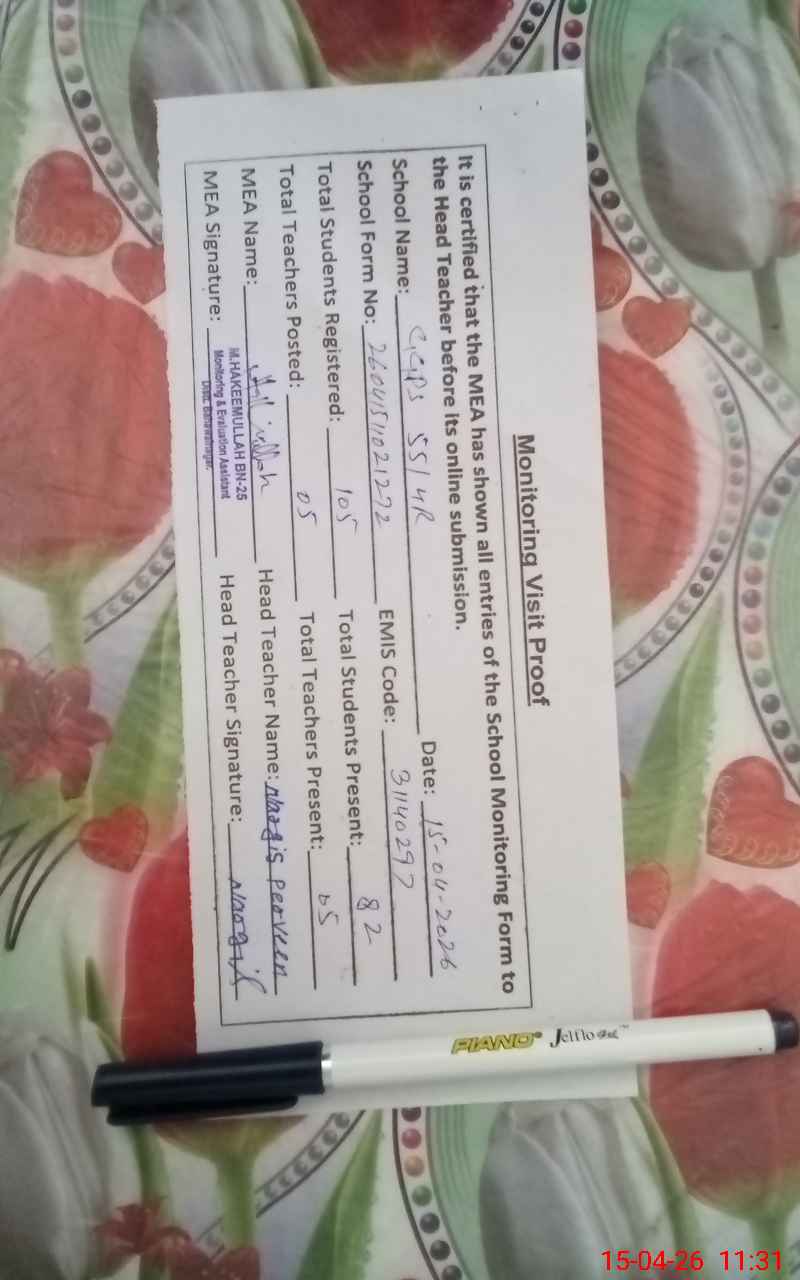 Monitoring Visit Proof
It is certified that the MEA has shown all entries of the School Monitoring Form to
the Head Teacher before its online submission.
School Name: GGPS 55/4R Date: 15-04-2026
School Form No: 2604151021272 EMIS Code: 31140297
Total Students Registered: 105 Total Students Present: 82
Total Teachers Posted: 05 Total Teachers Present: 05
MEA Name: Head Teacher Name: Nargis Perveen
MEA Signature: Head Teacher Signature: Nargis
M.HAKEEMULLAH BN-25
Monitoring & Evaluation Assistant
Distt. Bahawalnagar.
PIANO® Jelflo Gel™
15-04-26 11:31